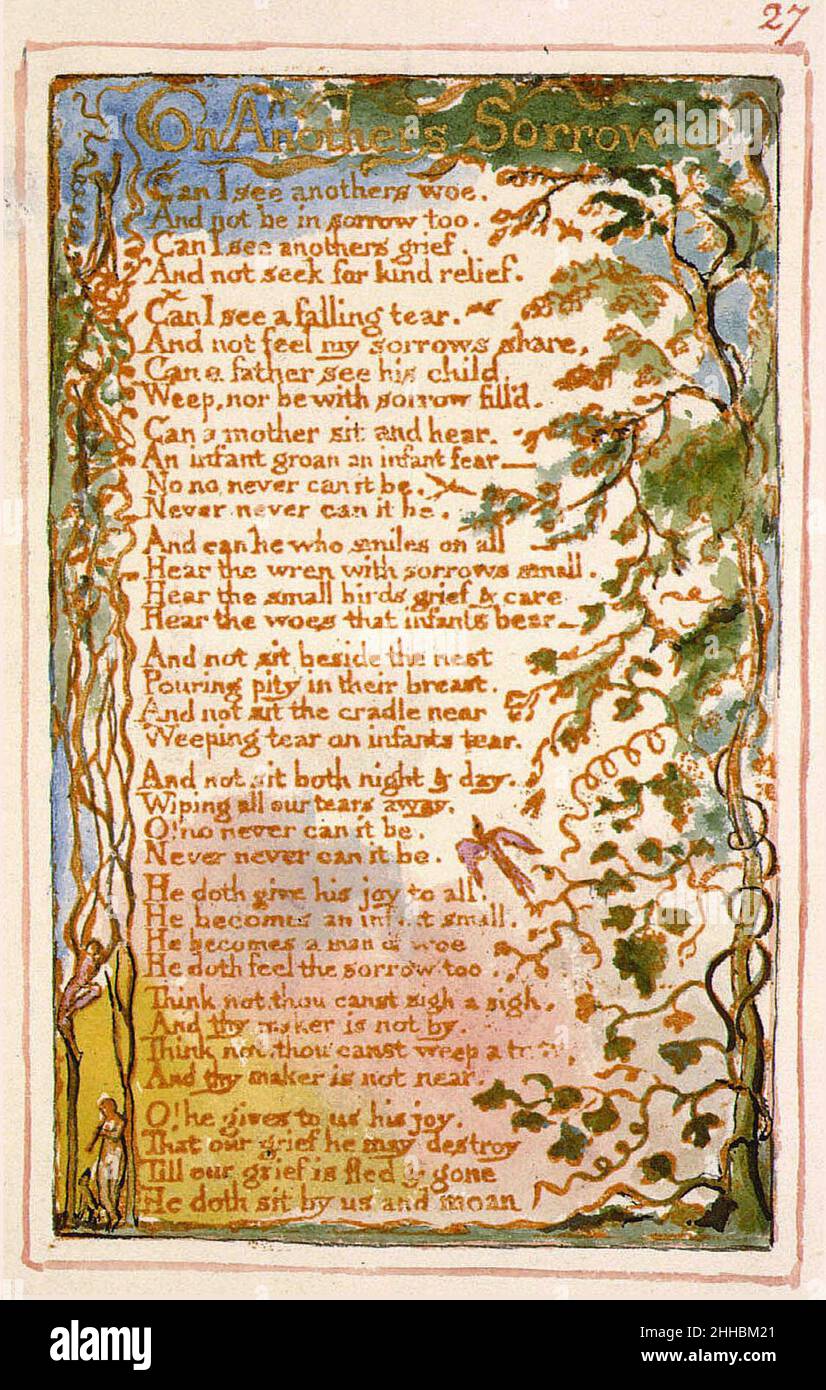 27
On Anothers Sorrow
Can I see anothers woe.
And not be in sorrow too.
Can I see anothers grief.
And not seek for kind relief.
Can I see a falling tear.
And not feel my sorrows share,
Can a father see his child,
Weep, nor be with sorrow fill'd.
Can a mother sit and hear.
An infant groan an infant fear—
No no never can it be.
Never never can it be.
And can he who smiles on all
Hear the wren with sorrows small.
Hear the small birds grief & care
Hear the woes that infants bear—
And not sit beside the nest
Pouring pity in their breast.
And not sit the cradle near
Weeping tear on infants tear.
And not sit both night & day.
Wiping all our tears away.
O! no never can it be.
Never never can it be.
He doth give his joy to all.
He becomes an infant small.
He becomes a man of woe
He doth feel the sorrow too.
Think not, thou canst sigh a sigh.
And thy maker is not by.
Think not, thou canst weep a tear,
And thy maker is not near.
O! he gives to us his joy.
That our grief he may destroy
Till our grief is fled & gone
He doth sit by us and moan
alamy
alamy
Image ID: 2HHBM21
www.alamy.com